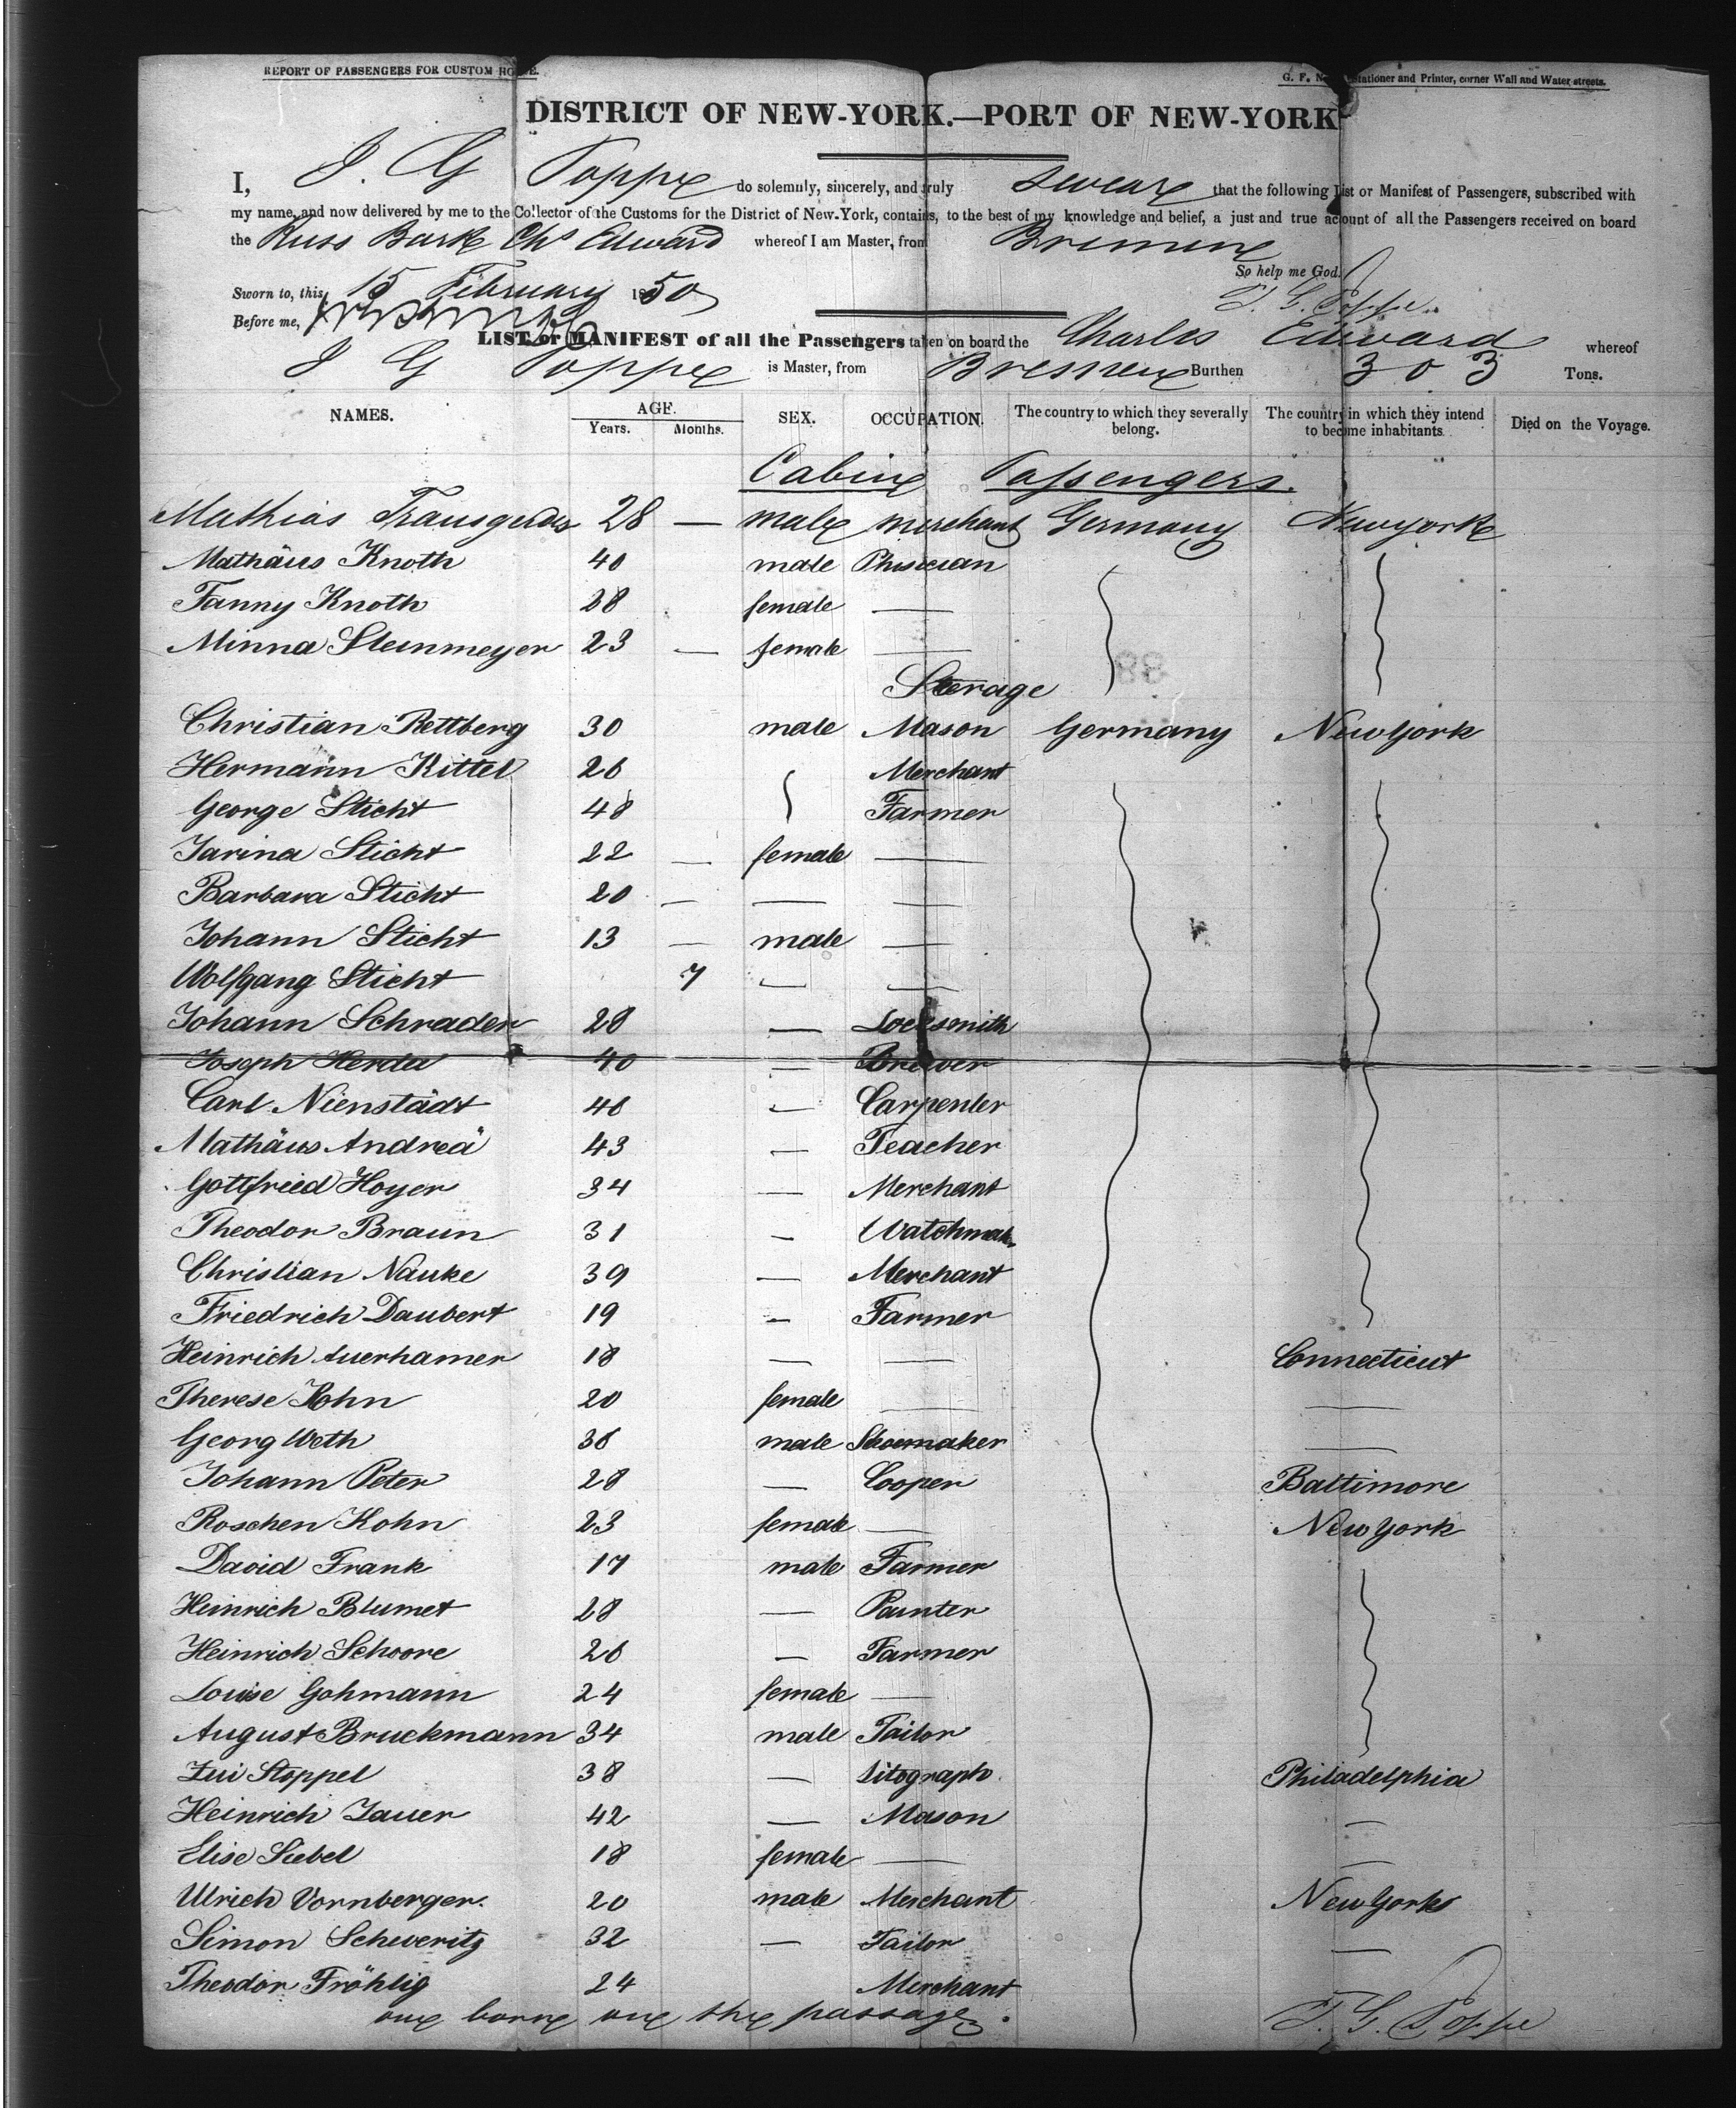 REPORT OF PASSENGERS FOR CUSTOM HOUSE.
G. F. Stationer and Printer, corner Wall and Water streets.
DISTRICT OF NEW-YORK.—PORT OF NEW-YORK
I, J. G Poppe do solemnly, sincerely, and truly swear that the following List or Manifest of Passengers, subscribed with
my name, and now delivered by me to the Collector of the Customs for the District of New-York, contains, to the best of my knowledge and belief, a just and true account of all the Passengers received on board
the Russ Bark Chs Edward whereof I am Master, from Bremen
So help me God.
Sworn to, this 15 February 1850
T. G. Poppe
Before me,
LIST or MANIFEST of all the Passengers taken on board the Charles Edward whereof
J G Poppe is Master, from Bremen Burthen 303 Tons.
NAMES. AGE. Years. Months. SEX. OCCUPATION. The country to which they severally belong. The country in which they intend to become inhabitants. Died on the Voyage.
Cabin Passengers.
Mathias 28 — male merchant Germany Newyork
Mathäus Knoth 40 male Phisician
Fanny Knoth 28 female —
Minna Steinmeyer 23 — female —
Sterage
Christian Rettberg 30 male Mason Germany NewYork
Hermann Kittel 26 Merchant
George Sticht 48 Farmer
Jarina Sticht 22 — female —
Barbara Sticht 20 — — —
Johann Sticht 13 — male —
Wolfgang Sticht 7 — —
Johann Schrader 28 — Locksmith
Joseph Herda 40 — Brewer
Carl Nienstädt 46 — Carpenter
Mathäus Andreä 43 — Teacher
Gottfried Hoyer 34 — Merchant
Theodor Braun 31 — Watchmak
Christian Nauke 39 — Merchant
Friedrich Daubert 19 — Farmer
Heinrich Auerhamer 18 — — Connecticut
Therese Kohn 20 female — —
Georg Weth 36 male Shoemaker —
Johann Peter 28 — Cooper Baltimore
Roschen Kohn 23 female — New York
David Frank 17 male Farmer
Heinrich Blumet 28 — Painter
Heinrich Schoore 26 — Farmer
Louise Gohmann 24 female —
August Bruckmann 34 male Tailor
Stoppel 38 — Litograph Philadelphia
Heinrich Jauer 42 — Mason —
Elise Siebel 18 female — —
Ulrich Vornberger. 20 male Merchant New York
Simon Scheveritz 32 — Tailor —
Theodor Fröhlig 24 Merchant
one borne one the passage.
T. G. Poppe